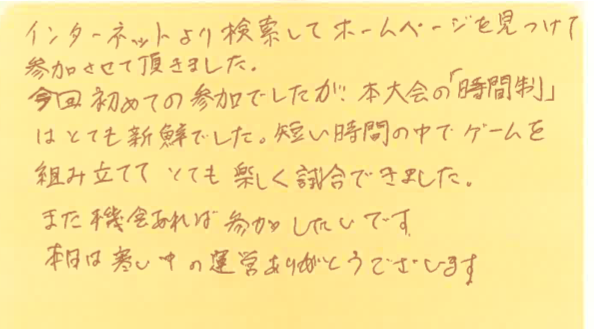 インターネットより検索してホームページを見つけて
参加させて頂きました。
今回初めての参加でしたが、本大会の「時間制」
はとても新鮮でした。短い時間の中でゲームを
組み立てて とても楽しく試合できました。
また機会あれば参加したいです
本日は寒い中の運営ありがとうございます